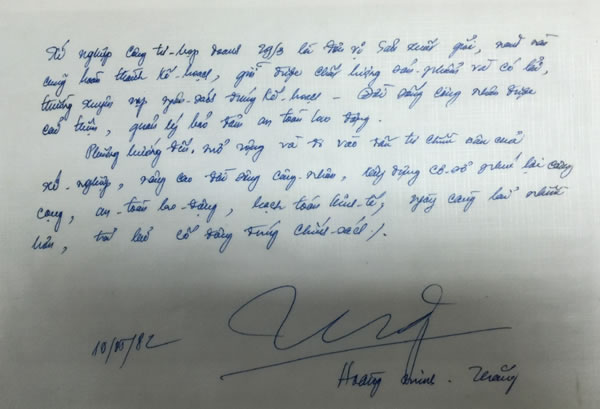 Xí nghiệp công tư hợp doanh 29/3 là đơn vị sản xuất giỏi, năm nào
cũng hoàn thành kế-hoạch, giữ được chất lượng sản-phẩm và có lãi,
thường xuyên nộp ngân-sách đúng kế-hoạch – Đời sống công nhân được
cải thiện, quản lý bảo đảm an toàn lao động.
Phương hướng đều, mở rộng và đi vào đầu tư chiều sâu của
xí-nghiệp, nâng cao đời sống công-nhân, xây dựng cơ-sở phúc lợi công
cộng, an-toàn lao-động, hạch toán kinh-tế, ngày càng lãi nhiều
hơn, trả lãi cổ đông đúng chính-sách /.
10/ /82
Hoàng Minh. Thắng